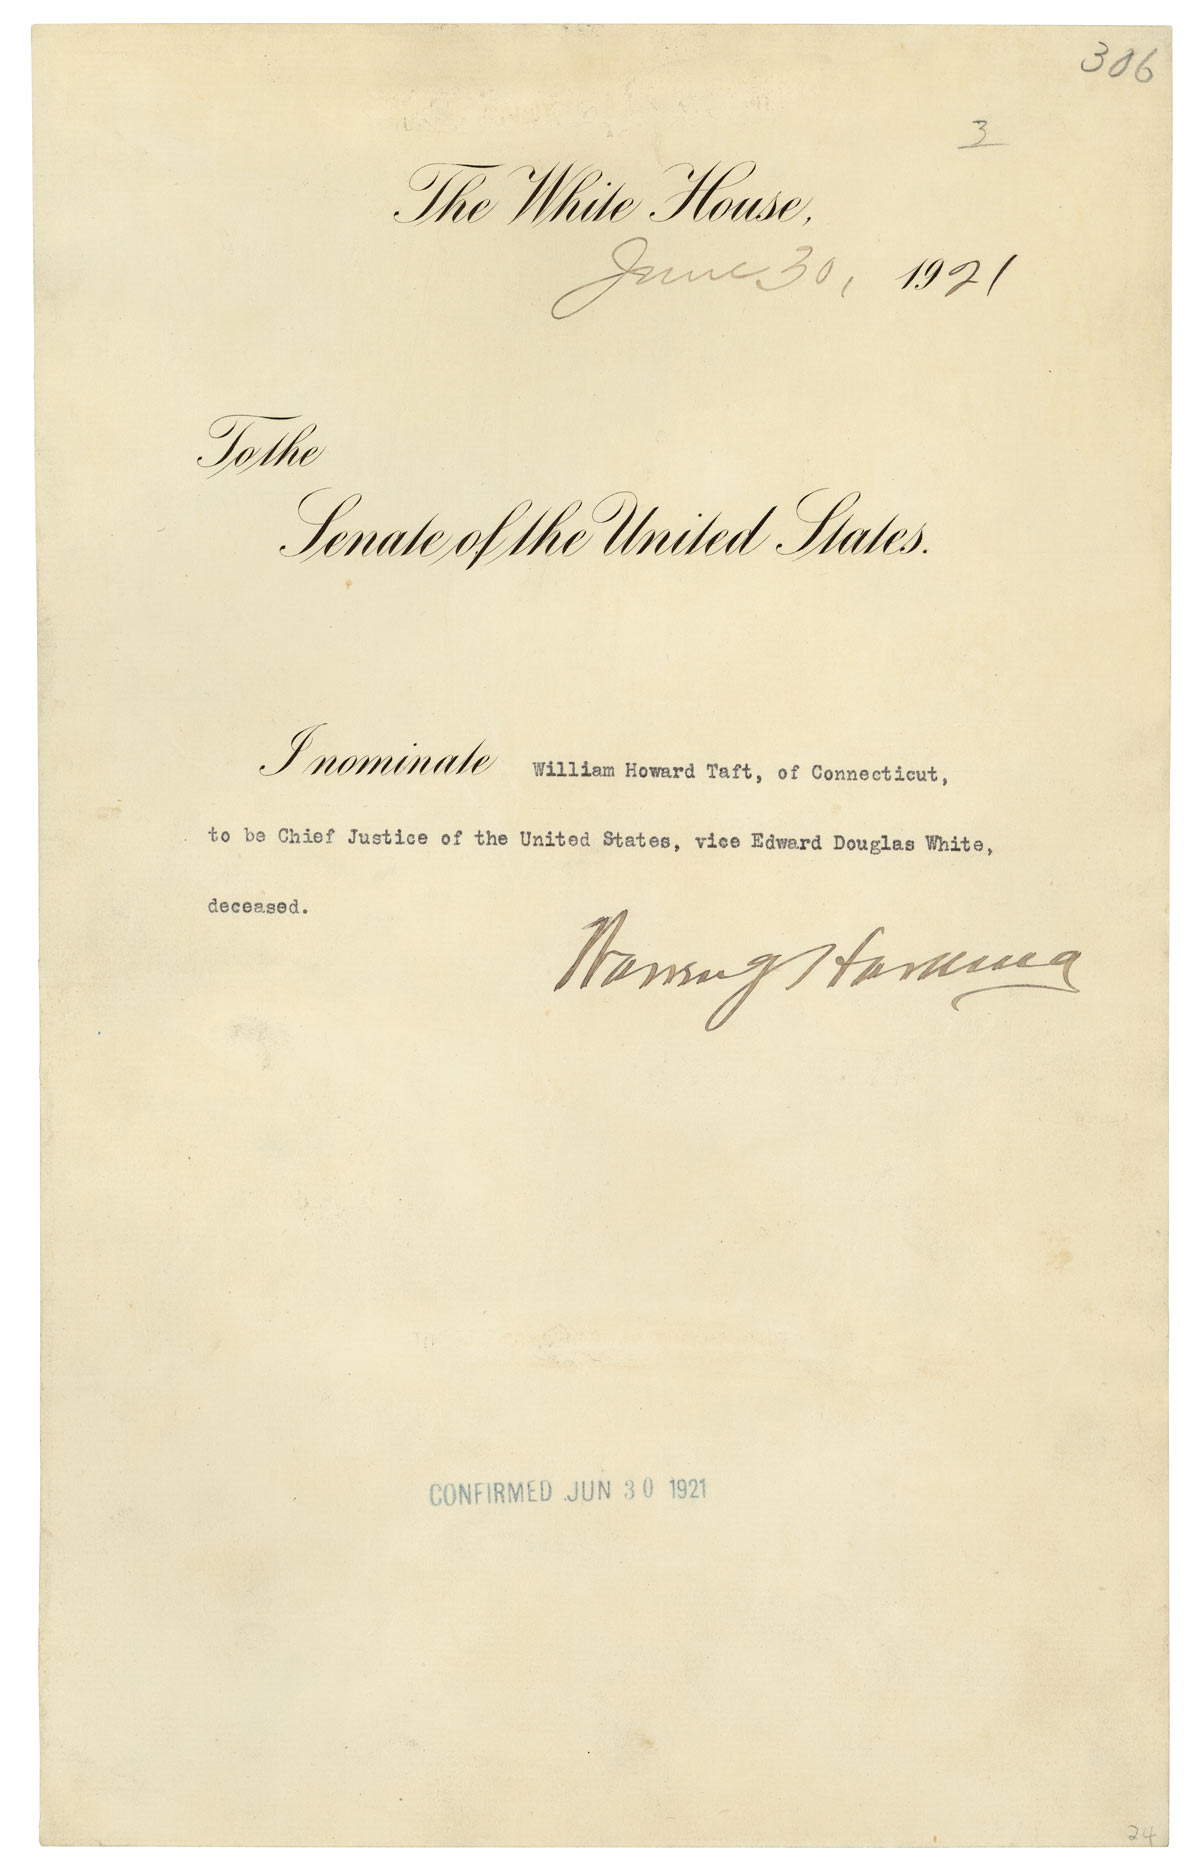 306
3
The White House,
June 30, 1921
To the
Senate of the United States.
I nominate William Howard Taft, of Connecticut,
to be Chief Justice of the United States, vice Edward Douglas White,
deceased.
Warren G Harding
CONFIRMED JUN 30 1921
24